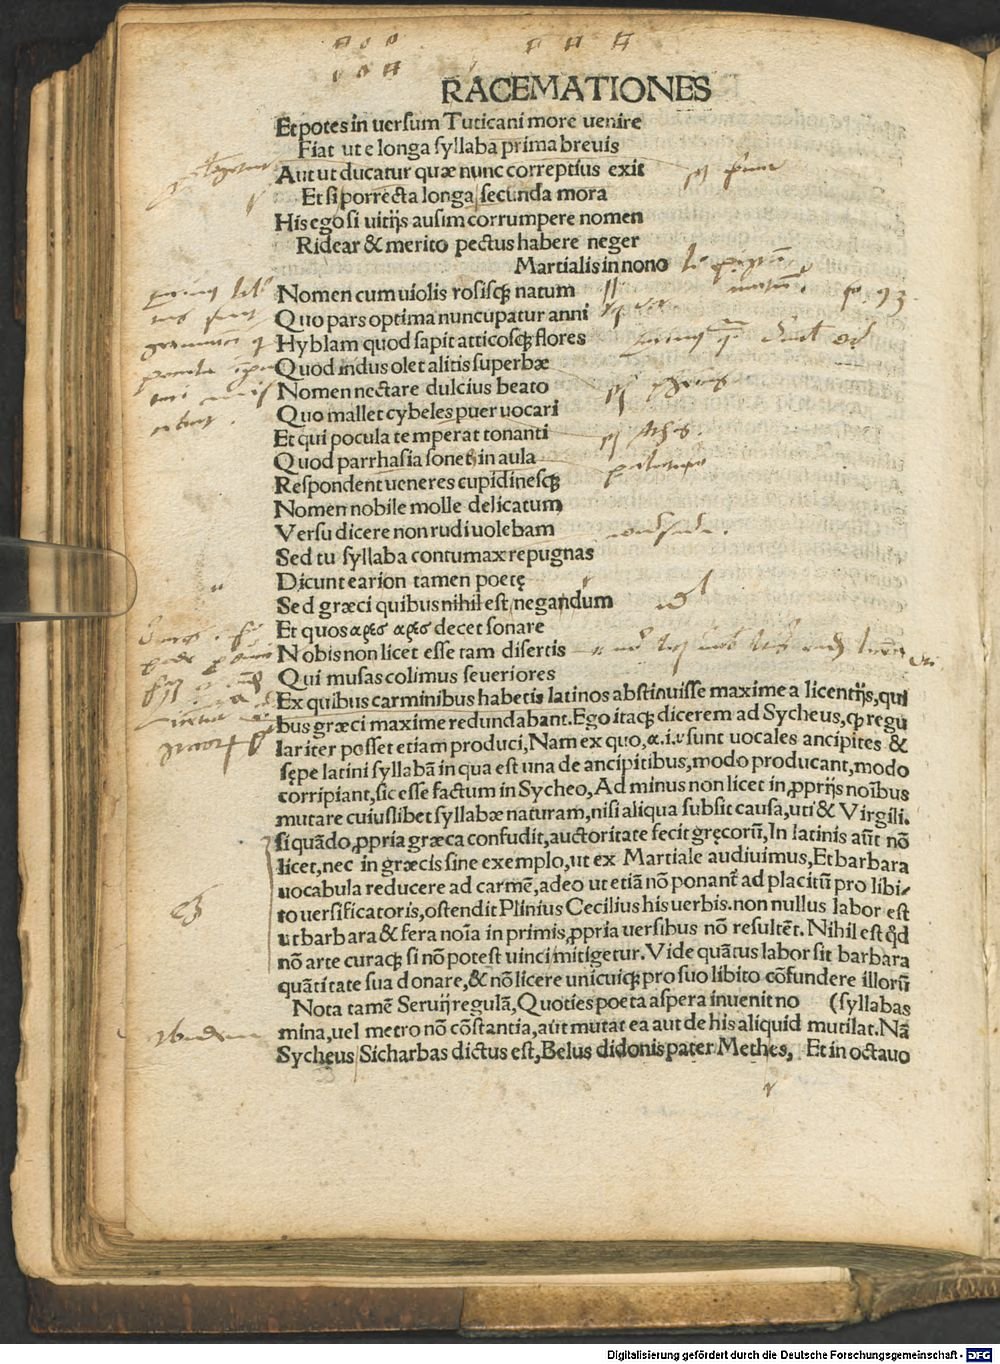 RACEMATIONES
Et potes in uersum Tuticani more uenire
Fiat ut e longa syllaba prima breuis
Aut ut ducatur quæ nunc correptius exit
Et si porrecta longa secunda mora
His ego si uitijs ausim corrumpere nomen
Ridear & merito pectus habere neger
Martialis in nono
Nomen cum uiolis rosisqꝫ natum
Quo pars optima nuncupatur anni
Hyblam quod sapit atticosqꝫ flores
Quod indus olet alitis superbæ
Nomen nectare dulcius beato
Quo mallet cybeles puer uocari
Et qui pocula temperat tonanti
Quod parrhasia sonet in aula
Respondent ueneres cupidinesqꝫ
Nomen nobile molle delicatum
Versu dicere non rudi uolebam
Sed tu syllaba contumax repugnas
Dicunt earion tamen poetę
Sed græci quibus nihil est negandum
Et quos αρες αρες decet sonare
Nobis non licet esse tam disertis
Qui musas colimus seueriores
Ex quibus carminibus habetis latinos abstinuisse maxime a licentijs, qui
bus græci maxime redundabant. Ego itaqꝫ dicerem ad Sycheus, ꝙ regu
lariter posset etiam produci, Nam ex quo, α.ι.υ sunt uocales ancipites &
sępe latini syllabã in qua est una de ancipitibus, modo producant, modo
corripiant, sic esse factum in Sycheo, Ad minus non licet in ꝓprijs noĩbus
mutare cuiuslibet syllabæ naturam, nisi aliqua subsit causa, uti & Virgili.
si quãdo ꝓpria græca confudit, auctoritate fecit gręcorũ, In latinis aũt nõ
licet, nec in græcis sine exemplo, ut ex Martiale audiuimus, Et barbara
uocabula reducere ad carmẽ, adeo ut etiã nõ ponant̃ ad placitũ pro libi-
to uersificatoris, ostendit Plinius Cecilius his uerbis. non nullus labor est
ut barbara & fera noĩa in primis, ꝓpria uersibus nõ resultẽt. Nihil est q̃d
nõ arte curaqꝫ si nõ potest uinci mitigetur. Vide quãtus labor sit barbara
quãtitate sua donare, & nõ licere unicuiqꝫ pro suo libito cõfundere illorũ
Nota tamẽ Seruij regulã, Quoties poeta aspera inuenit no (syllabas
mina, uel metro nõ cõstantia, aũt mutat ea aut de his aliquid mutilat. Nã
Sychęus Sicharbas dictus est, Belus didonis pater Methes, Et in octauo
Digitalisierung gefördert durch die Deutsche Forschungsgemeinschaft - DFG